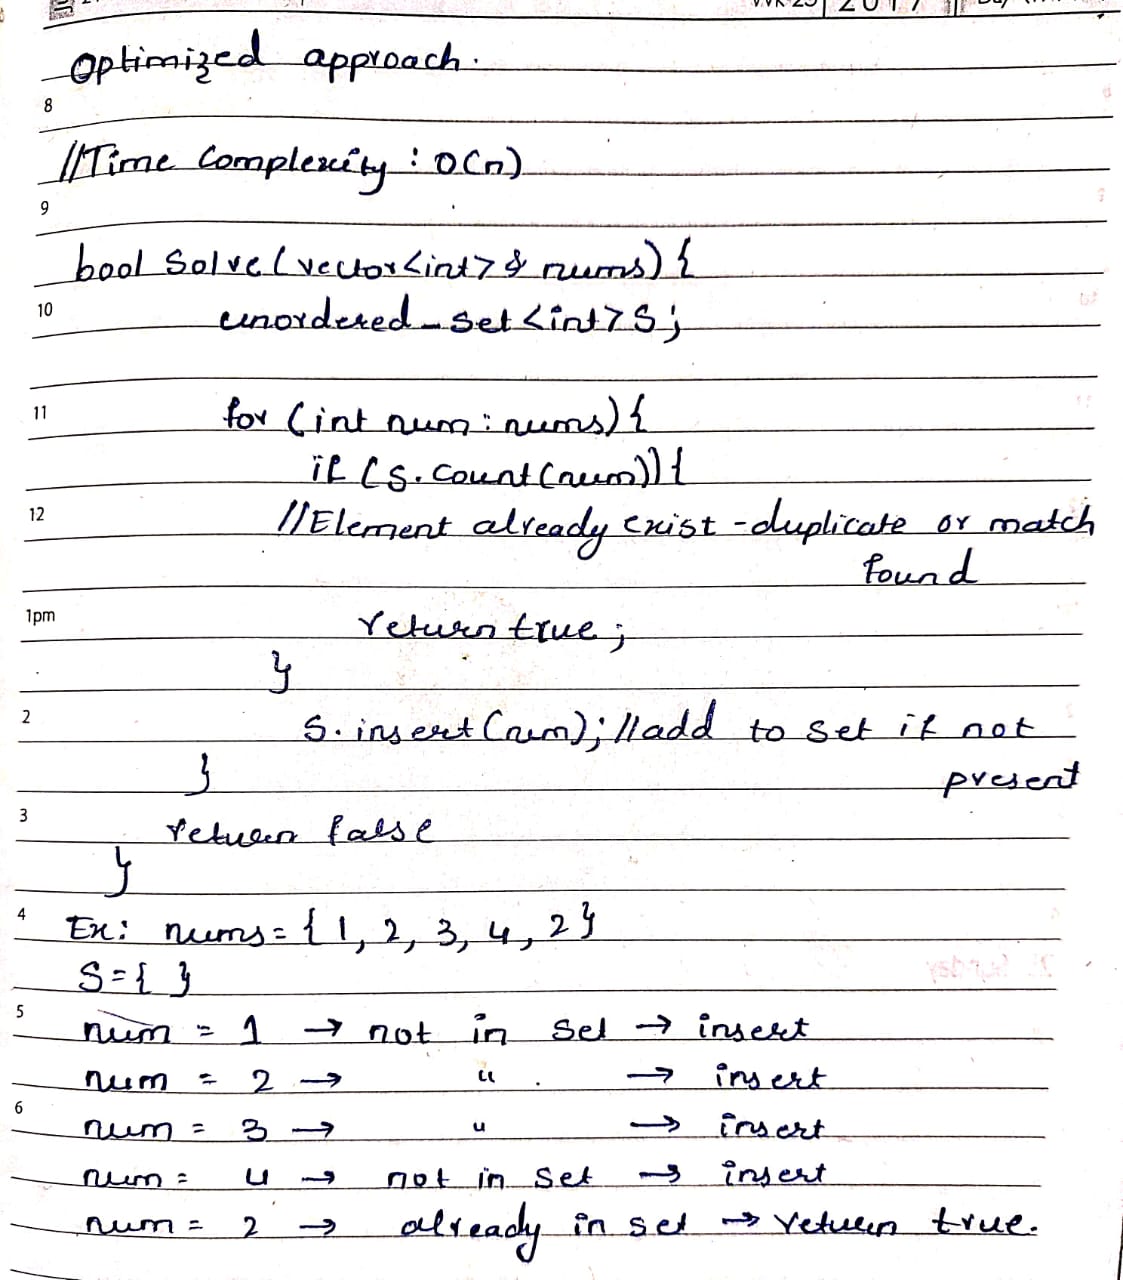 2017
Optimized approach.
8
//Time Complexity : O(n)
9
bool Solve(vector<int>& nums){
10
unordered_set<int>S;
11
for (int num : nums){
if (S.count(num)){
12
//Element already exist - duplicate or match
found
1pm
return true;
}
2
S.insert(num); //add to set if not
}
present
3
return false
}
4
Ex: nums = {1, 2, 3, 4, 2}
S = { }
5
num = 1 → not in set → insert
num = 2 → " → insert
6
num = 3 → " → insert
num = 4 → not in set → insert
num = 2 → already in set → return true.